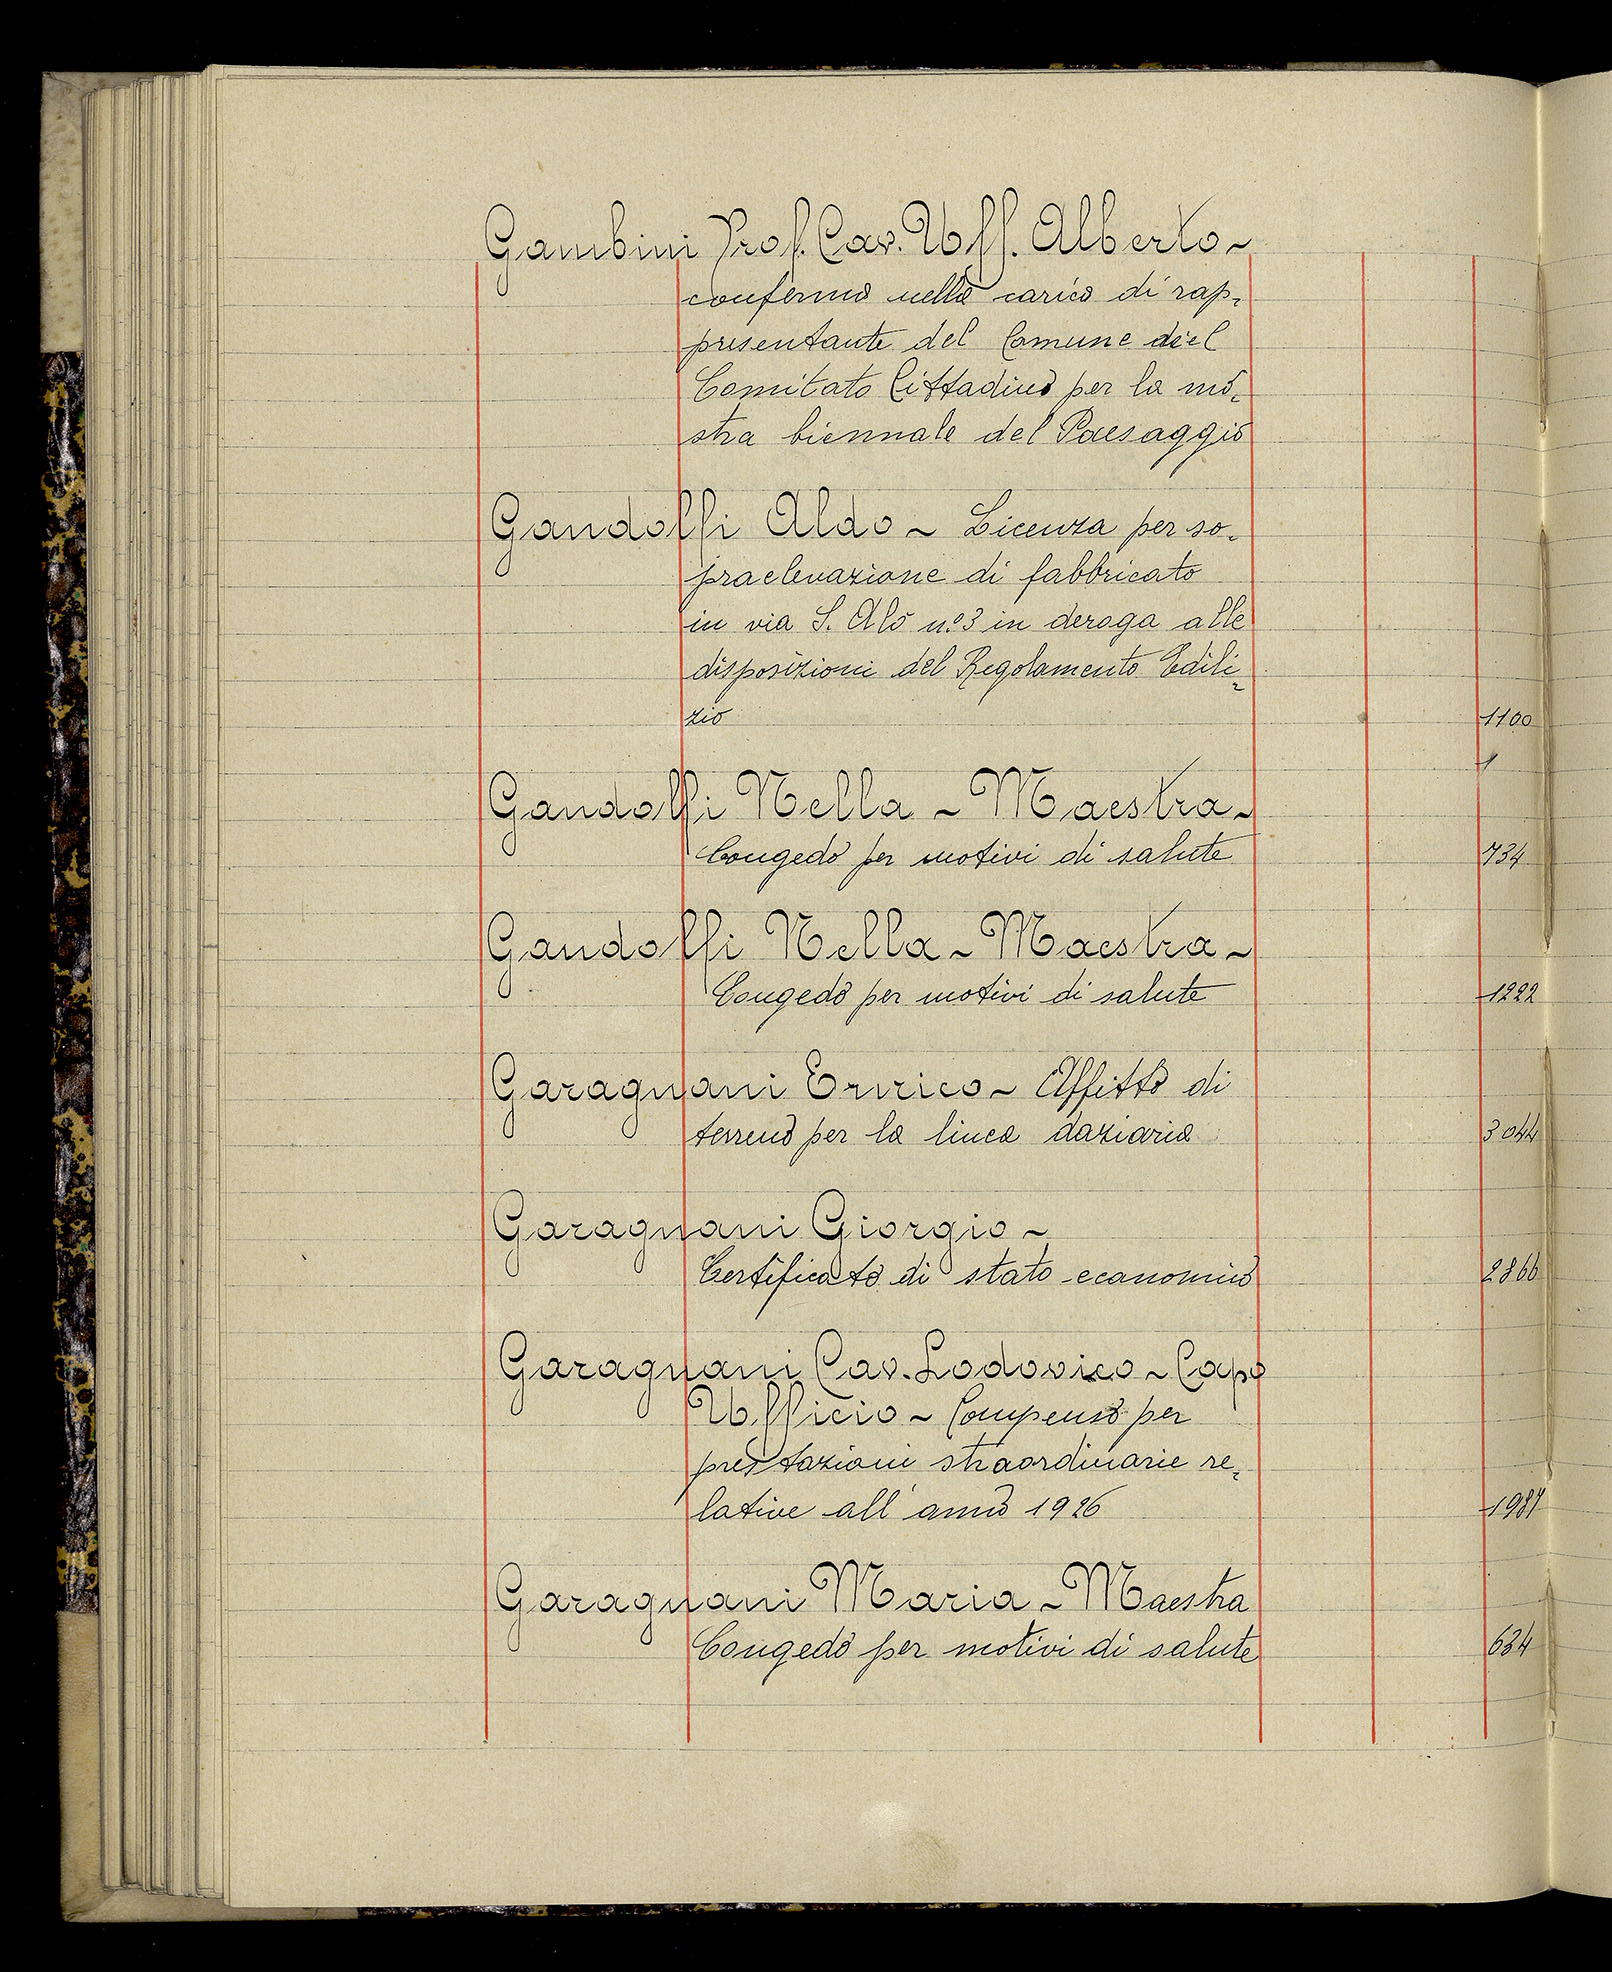 Gambini Prof. Cav. Uff. Alberto ~
conferma nella carica di rap-
presentante del Comune del
Comitato Cittadino per la mo-
stra biennale del Paesaggio
Gandolfi Aldo ~ Licenza per so-
praelevazione di fabbricato
in via S. Alò n.º 3 in deroga alle
disposizioni del Regolamento Edili-
zio 1100
Gandolfi Nella ~ Maestra ~
Congedo per motivi di salute 734
Gandolfi Nella ~ Maestra ~
Congedo per motivi di salute 1222
Garagnani Enrico ~ Affitto di
terreno per la linea daziaria 3044
Garagnani Giorgio ~
Certificato di stato economico 2866
Garagnani Cav. Lodovico ~ Capo
Ufficio ~ Compenso per
prestazioni straordinarie re-
lative all'anno 1926 1987
Garagnani Maria ~ Maestra
Congedo per motivi di salute 634